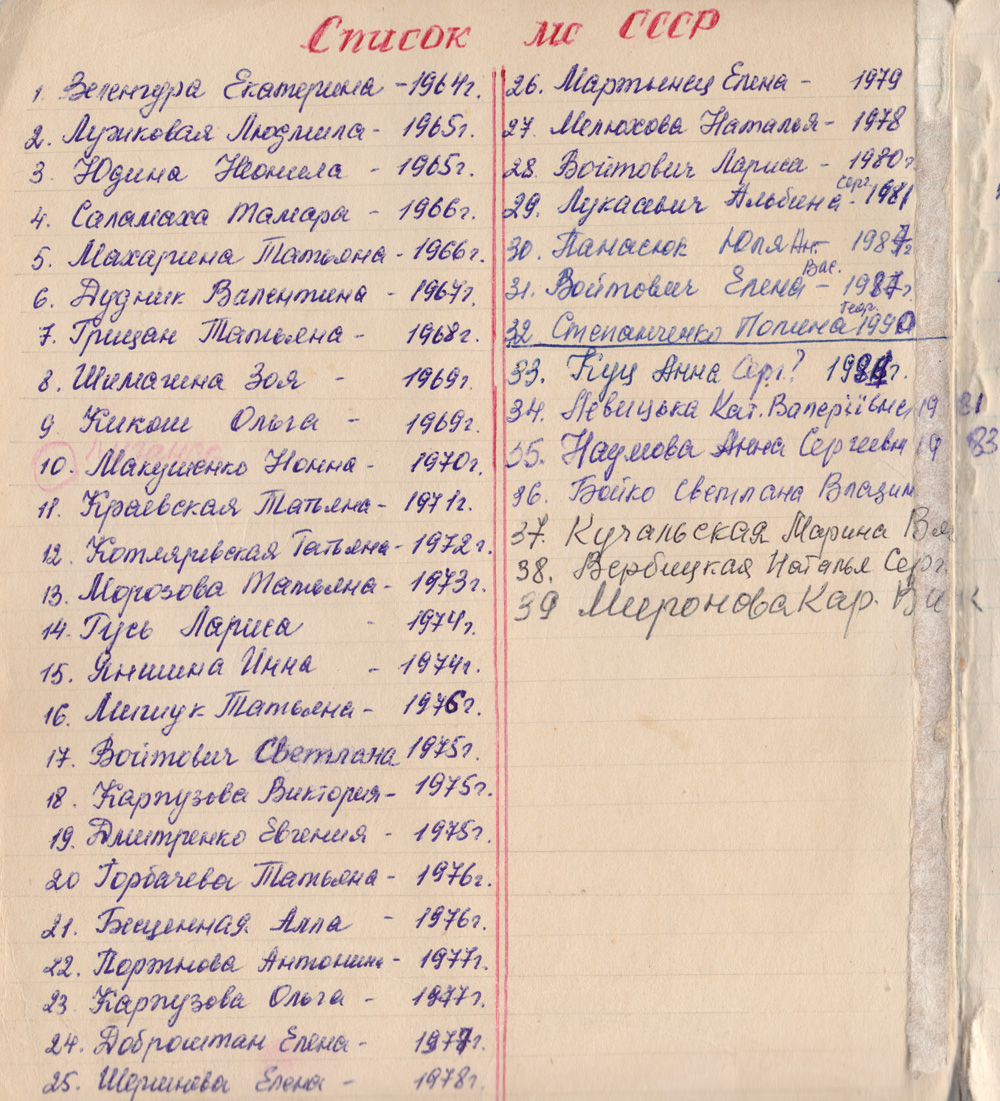 Список мс СССР
1. Зеленгура Екатерина - 1964г.
2. Лужковая Людмила - 1965г.
3. Юдина Неонила - 1965г.
4. Саламаха Тамара - 1966г.
5. Махарина Татьяна - 1966г.
6. Дудник Валентина - 1967г.
7. Грицан Татьяна - 1968г.
8. Шимагина Зоя - 1969г.
9. Кикош Ольга - 1969г.
10. Макушенко Нонна - 1970г.
11. Краевская Татьяна - 1971г.
12. Котляревская Татьяна - 1972г.
13. Морозова Татьяна - 1973г.
14. Гусь Лариса - 1974г.
15. Яншина Инна - 1974г.
16. Мишук Татьяна - 1976г.
17. Войтович Светлана 1975г.
18. Карпузова Виктория - 1975г.
19. Дмитренко Евгения - 1975г.
20 Горбачева Татьяна - 1976г.
21. Бесценная Алла - 1976г.
22. Портнова Антонина - 1977г.
23. Карпузова Ольга - 1977г.
24. Доброштан Елена - 1977г.
25. Шершнова Елена - 1978г.
26. Мартынец Елена - 1979
27. Мелюхова Наталья - 1978
28. Войтович Лариса - 1980г
29. Лукасевич Альбина Серг. - 1981
30. Панасюк Юля Ан - 1987г
31. Войтович Елена Вас. - 1987г.
32 Степанченко Полина Геор. 1990
33. Куц Анна Серг? 1984г.
34. Левицька Кат. Валеріївна 19 81
35. Наумова Анна Сергеевн 19 83
36. Бойко Светлана Владим
37. Кучальская Марина Вя
38. Вербицкая Наталья Серг.
39 Миронова Кар.